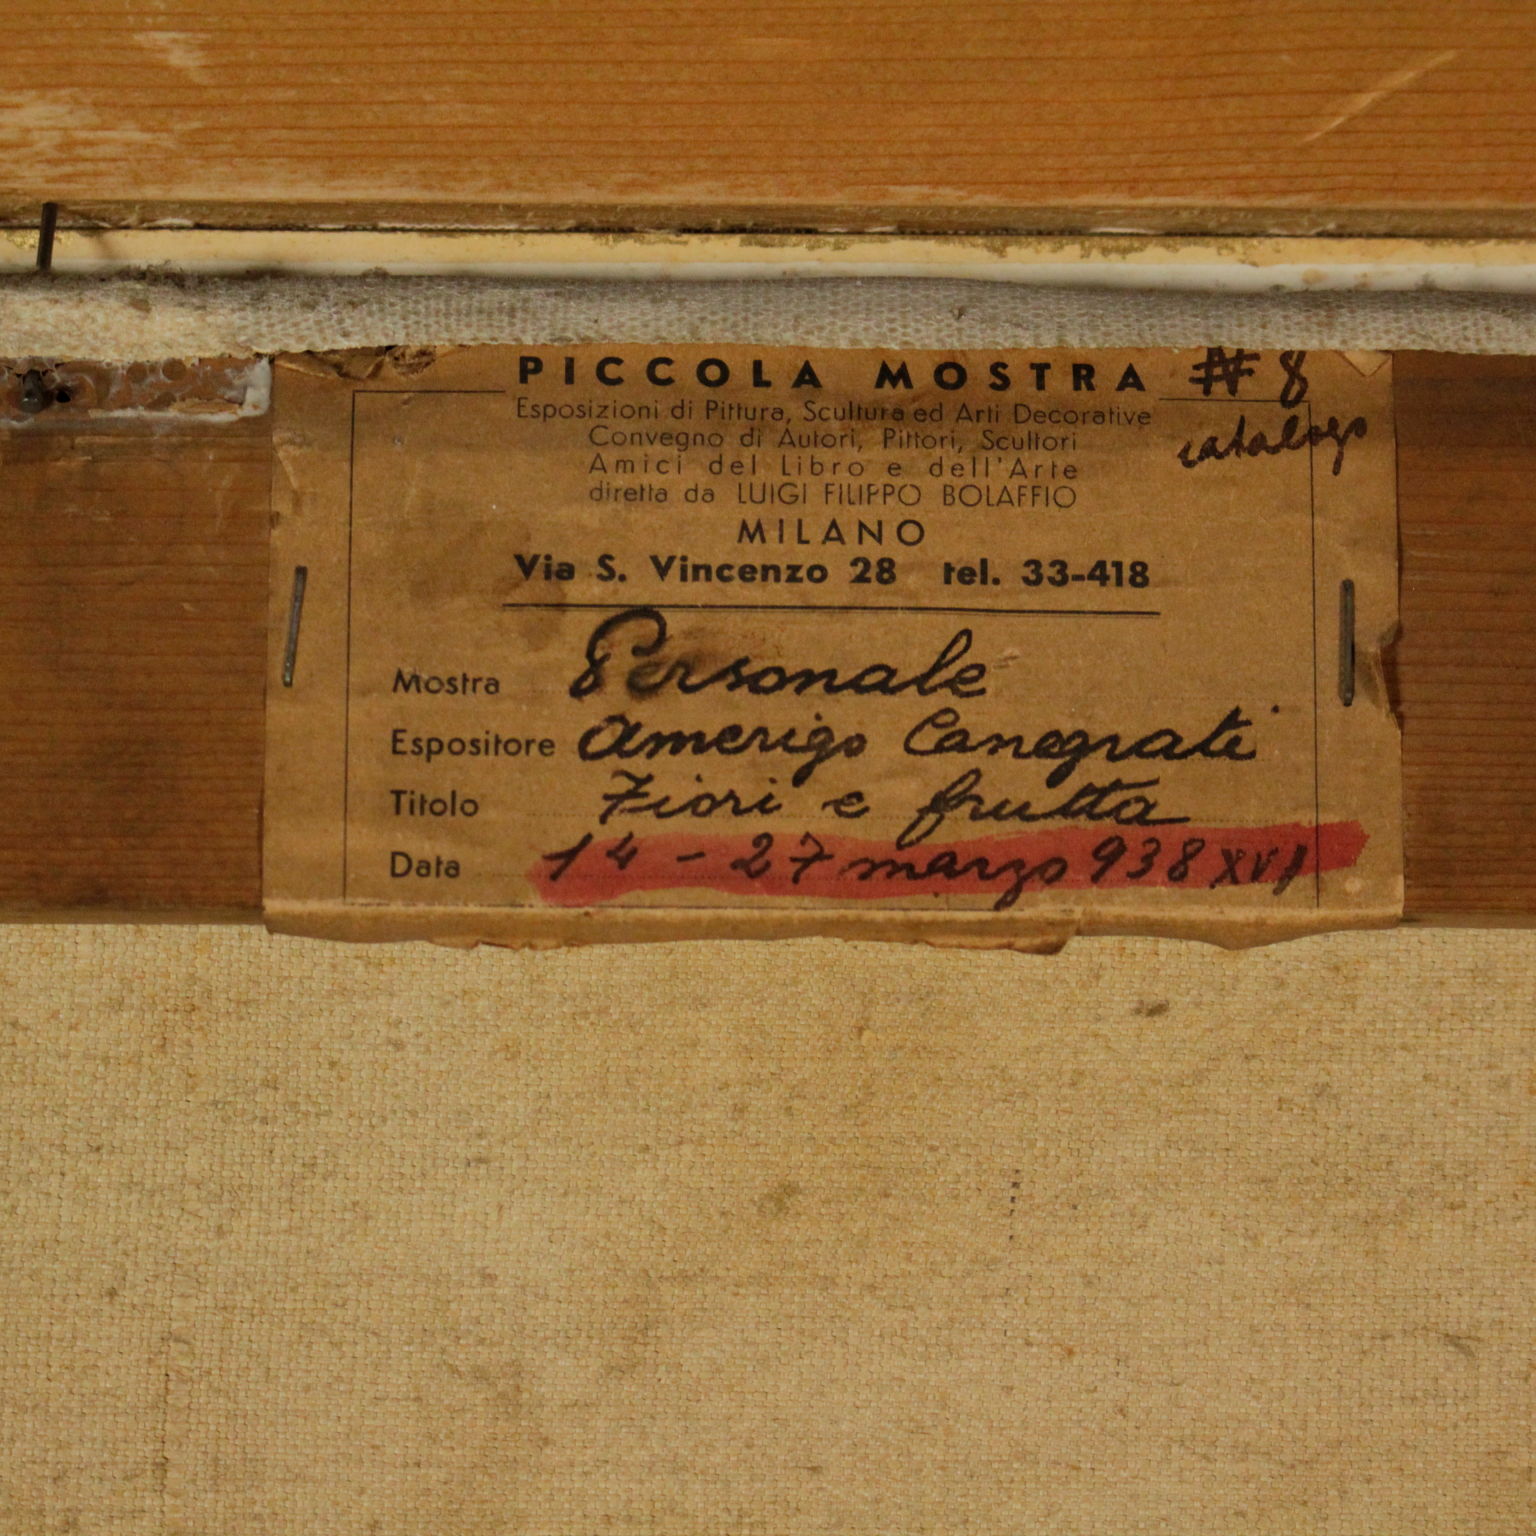 PICCOLA MOSTRA # 8
catalogo
Esposizioni di Pittura, Scultura ed Arti Decorative
Convegno di Autori, Pittori, Scultori
Amici del Libro e dell'Arte
diretta da LUIGI FILIPPO BOLAFFIO
MILANO
Via S. Vincenzo 28 tel. 33-418
Mostra Personale
Espositore Amerigo Canegrati
Titolo Fiori e frutta
Data 14 - 27 marzo 938 XVI